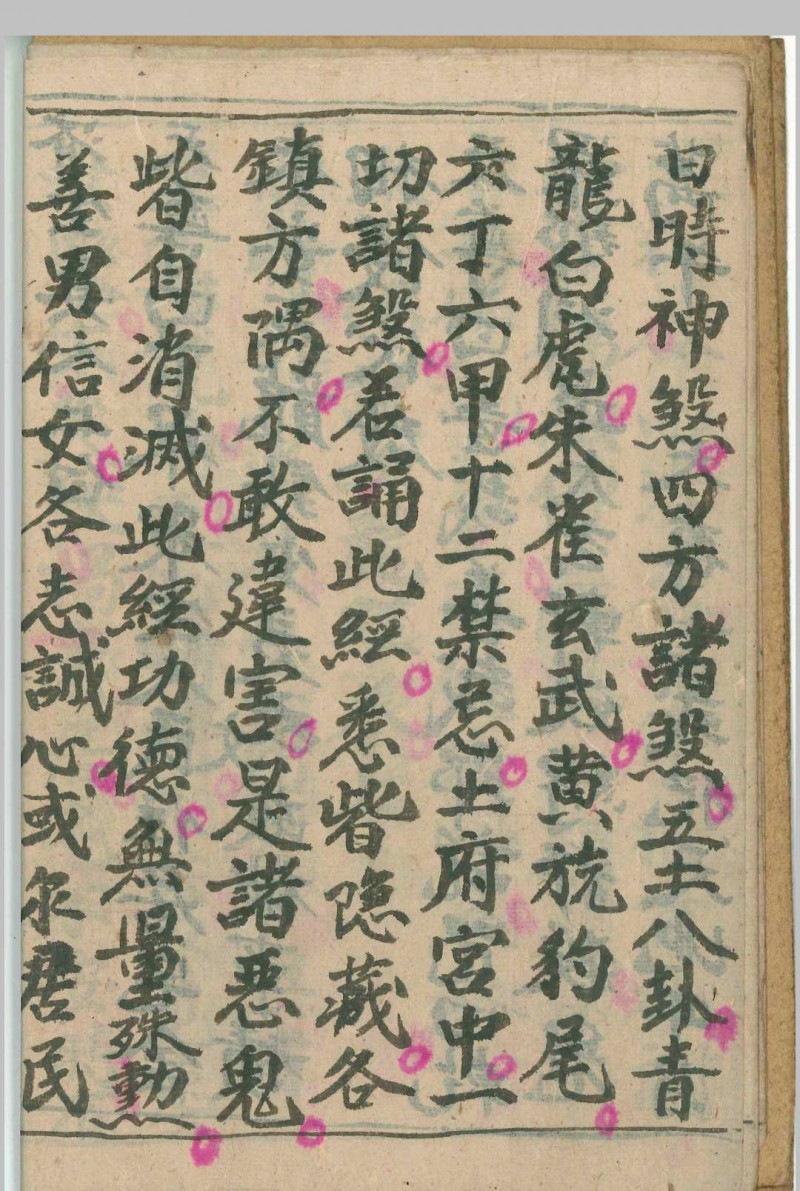 日時神煞四方諸煞五土八卦青
龍白虎朱雀玄武黃旄豹尾
六丁六甲十二禁忌土府宮中一
切諸煞若誦此經悉皆隱藏各
鎮方隅不敢違害是諸惡鬼
皆自消滅此經功德無量殊勳
善男信女各志誠心或泉居民